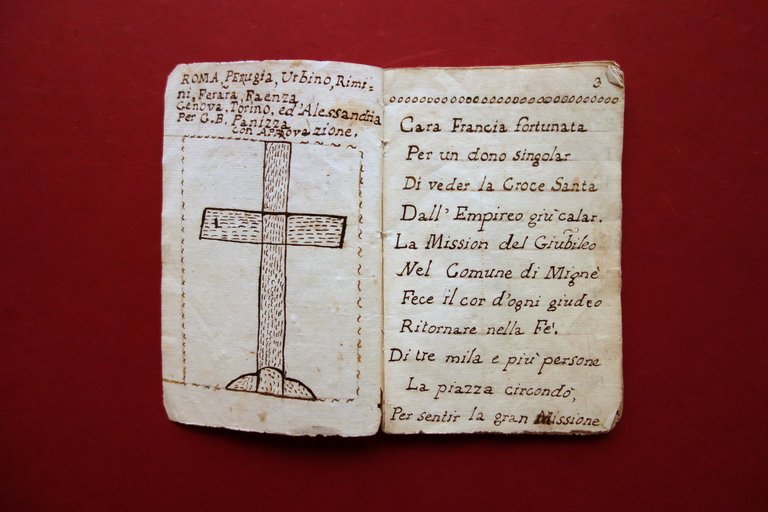 ROMA, Perugia, Urbino, Rimi-
ni, Ferara, Faenza
Genova, Torino, ed'Alessandria
Per G.B. Panizza
con Approvazione.
3
Cara Francia fortunata
Per un dono singolar
Di veder la Croce Santa
Dall' Empireo giù calar.
La Mission del Giubileo
Nel Comune di Mignè
Fece il cor d'ogni giudeo
Ritornare nella Fe'.
Di tre mila e più persone
La piazza circondò,
Per sentir la gran Missione